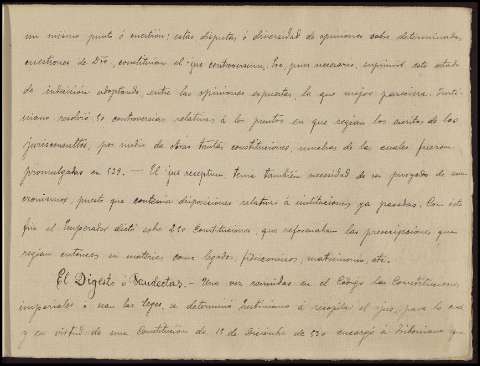 un mismo punto ó cuestión: estas disputas ó diversidad de opiniones sobre determinadas
cuestiones de Dro, constituian el jus controversum. Era pues necesario, suprimir este estado
de indecisión adoptando, entre las opiniones expuestas, la que mejor pareciera. Justi-
niano resolvió 50 controversias relativas á los puntos en que regian los escritos de los
jurisconsultos, por medio de otras tantas constituciones, muchas de las cuales fueron
promulgadas en 529. — El jus receptum, tenia también necesidad de ser purgado de ana-
cronismos, puesto que contenia disposiciones relativas á instituciones ya pasadas. Con este
fin el Emperador dictó sobre 200 Constituciones, que reformaban las prescripciones que
regian entonces en materias como legados, fideicomisos, matrimonio, etc.
El Digesto ó Pandectas. — Una vez reunidas en el Código las Constituciones
imperiales ó sean las leges, se determinó Justiniano á recopilar el jus, para lo cual
y en virtud de una Constitución de 15 de Diciembre de 530 encargó á Triboniano que